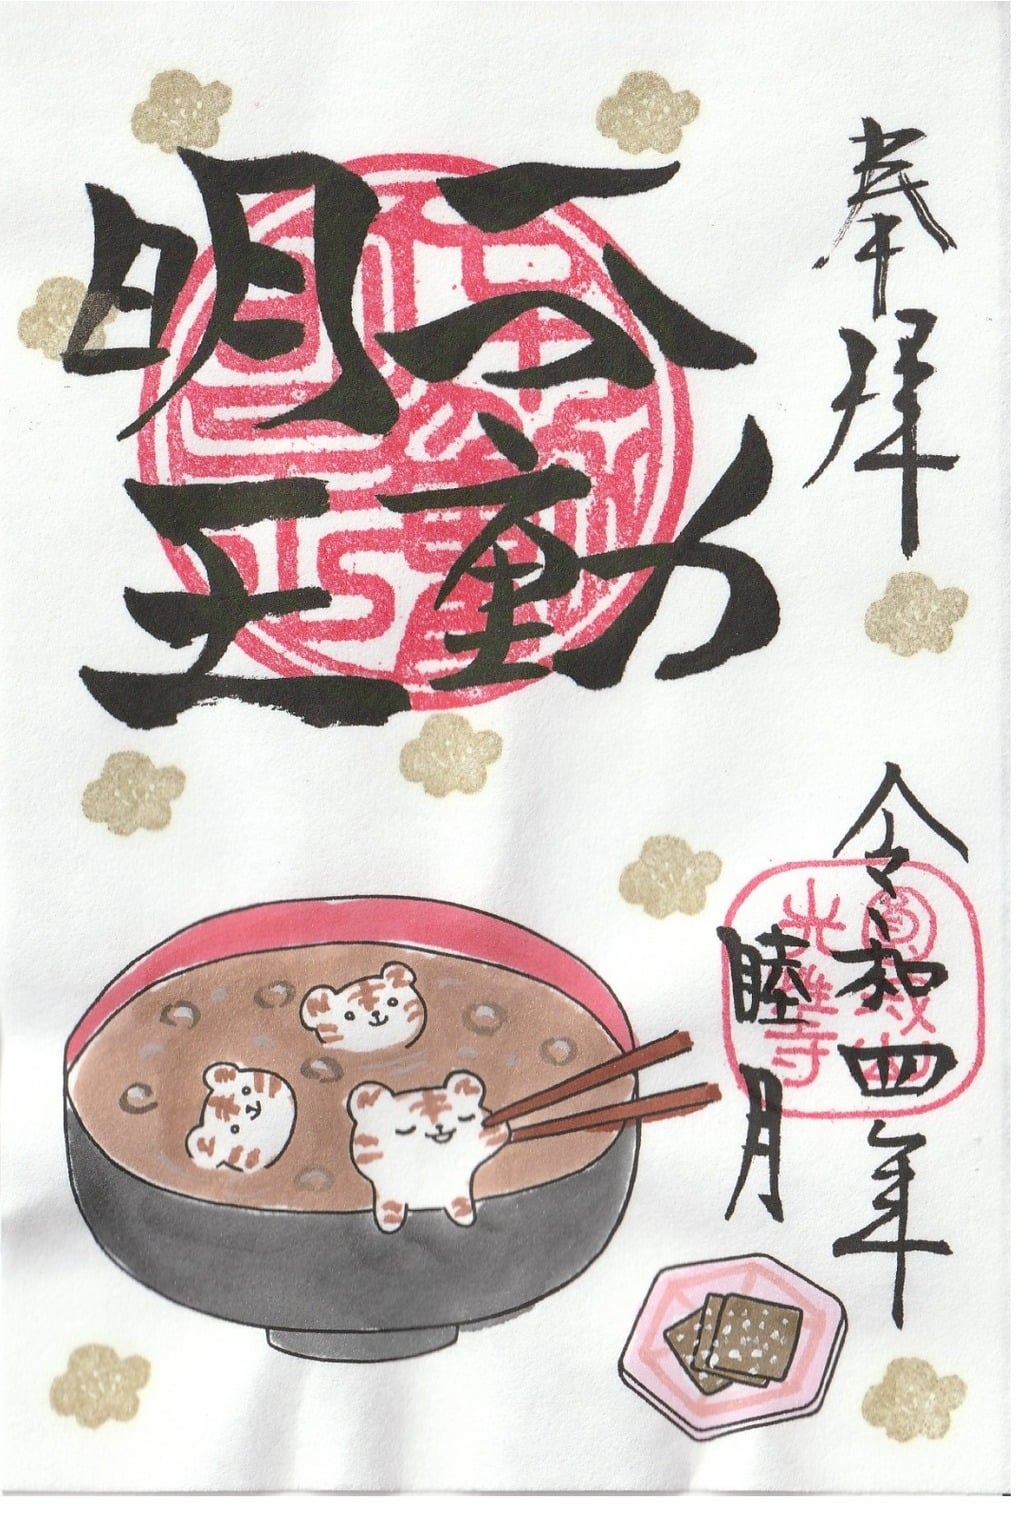 奉拝
不動
明王
令和四年
睦月
光雄寺